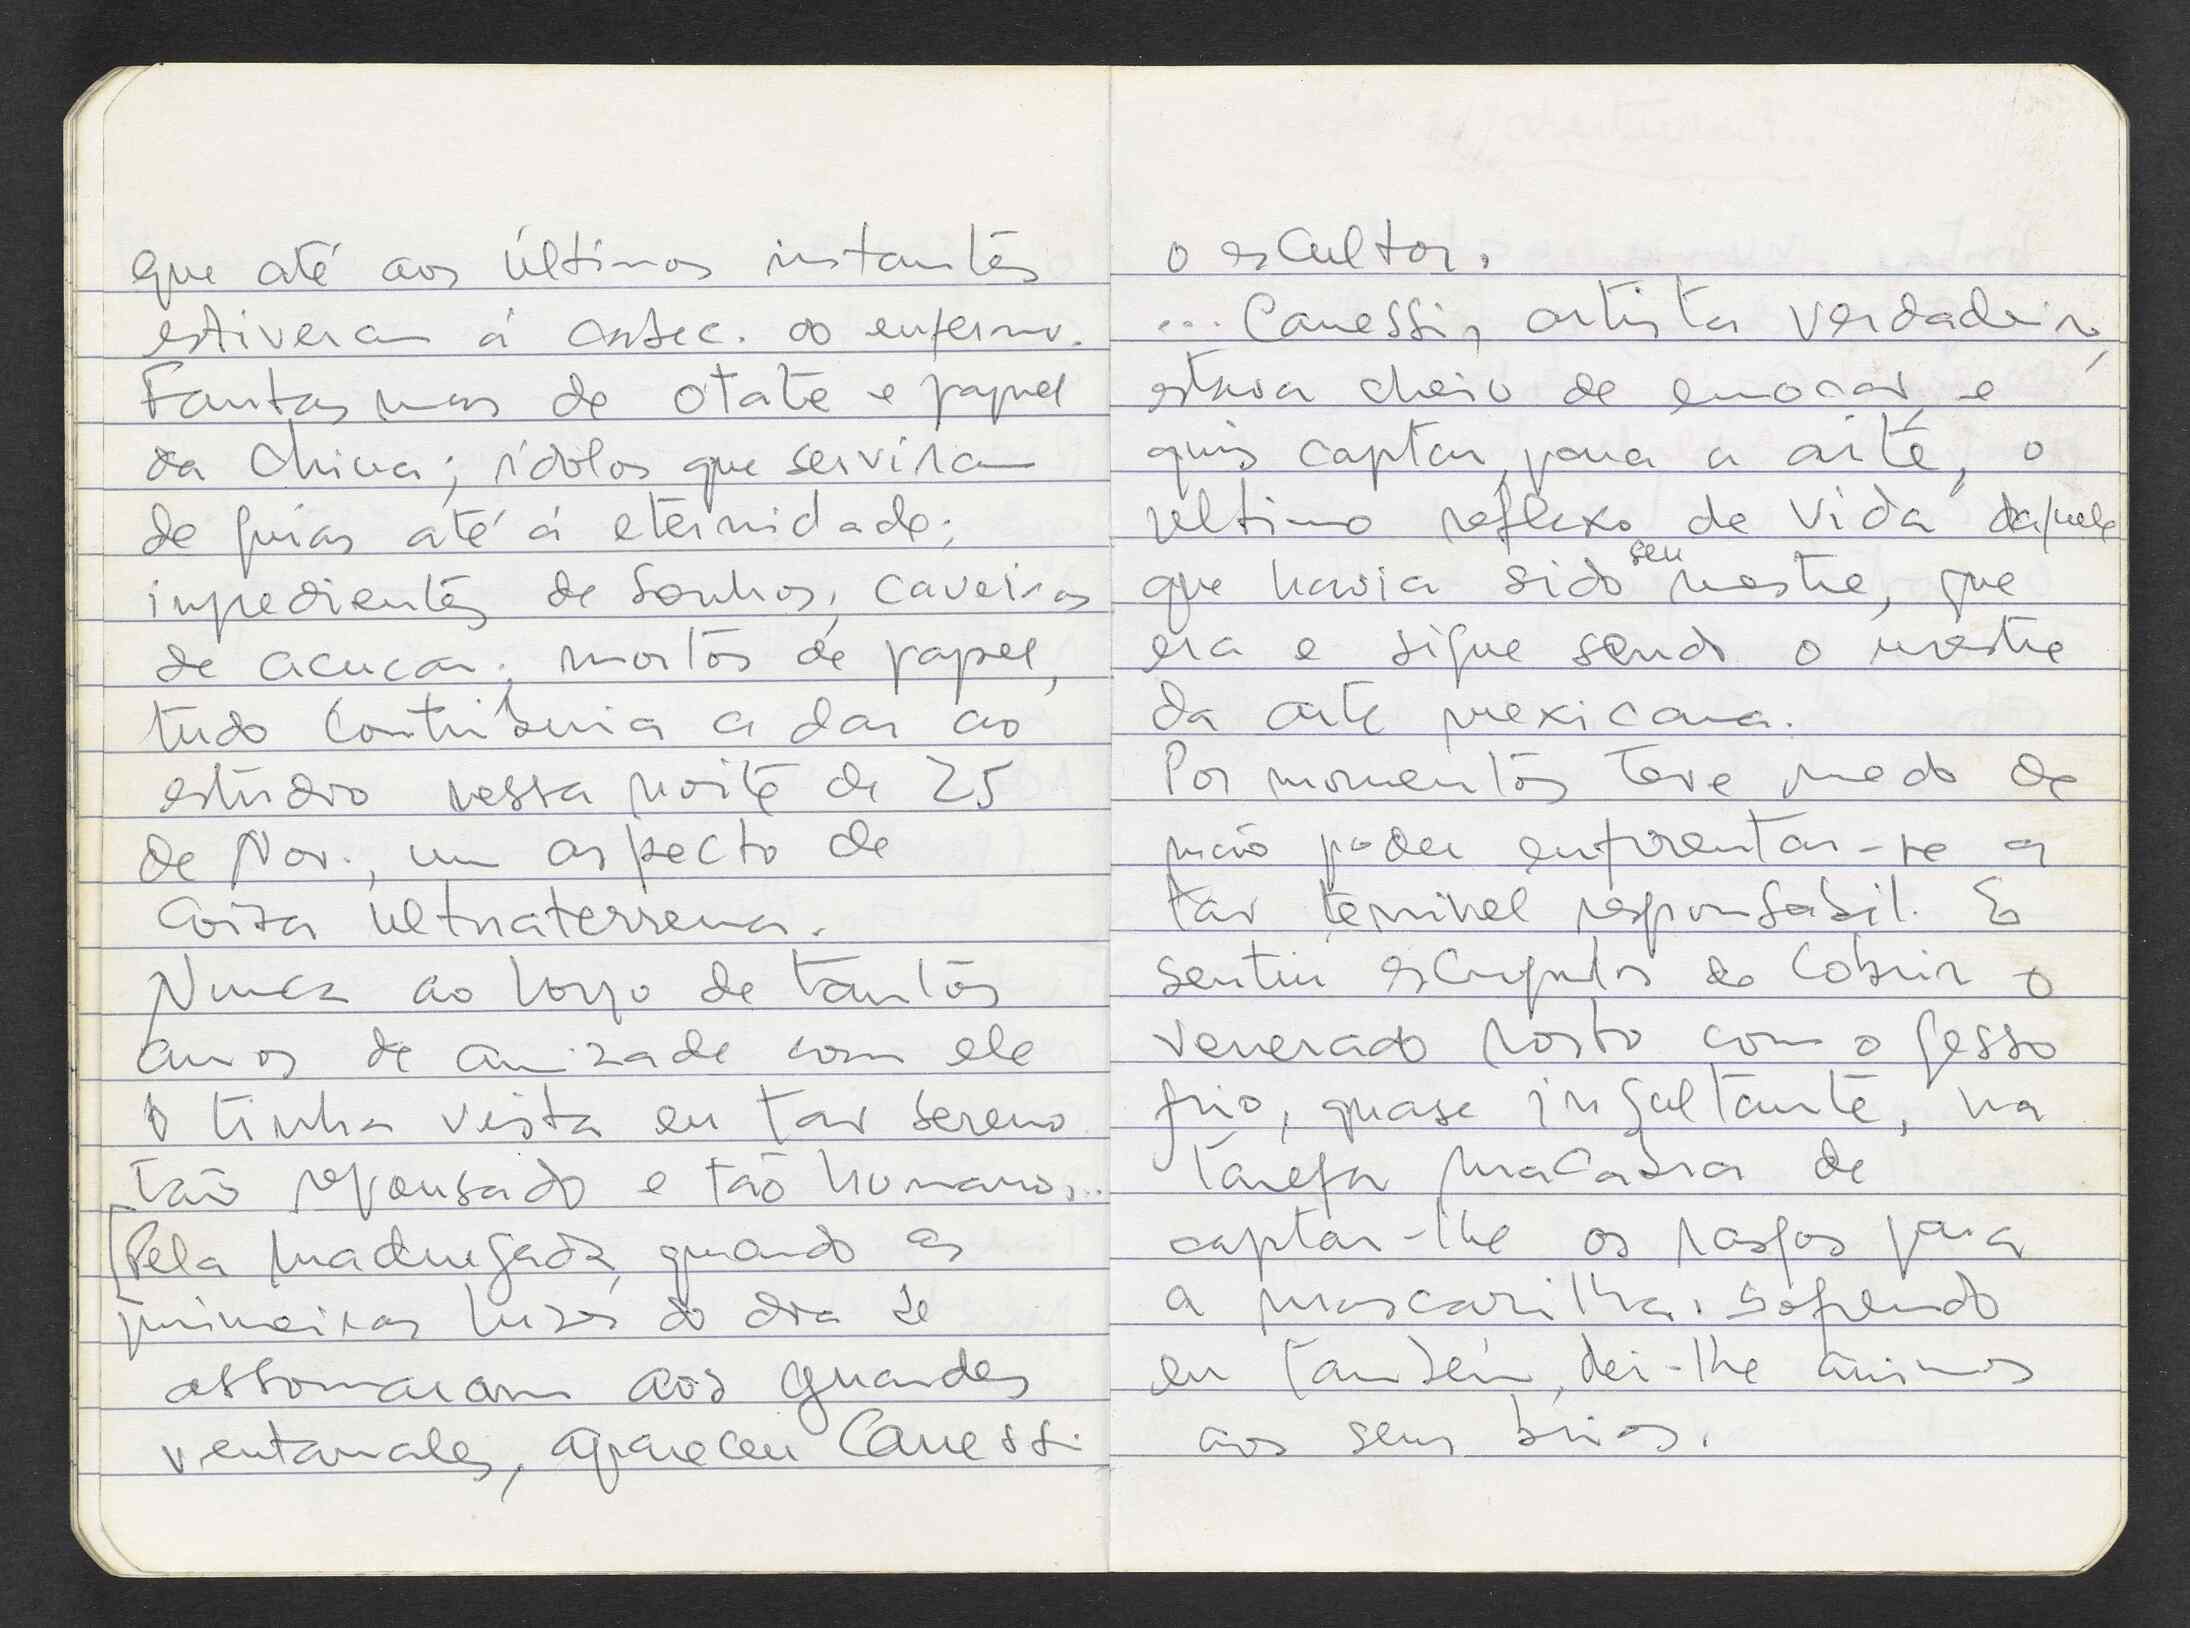 que até aos últimos instantes
estiveram á cabec. do enfermo.
Fantasmas de otate e papel
da China; ídolos que serviram
de guias até á eternidade;
ingredientes de sonhos, caveiras
de acucar; mortos de papel,
tudo contribuia a dar ao
estúdio nessa noite de 25
de Nov., um aspecto de
coisa ultraterrena.
Nunca ao longo de tantos
anos de amizade com ele
o tinha visto eu tao sereno
tão repousado e tão humano...
Pela madrugada, quando as
primeiras luzes do dia se
assomaram aos grandes
ventanales, apareceu Canessi
o escultor.
... Canessi, artista verdadeiro,
estava cheio de emocao, e
quis captar, para a arte, o
ultimo reflexo de vida daquele
que havia sido seu mestre, que
era e sigue sendo o mestre
da arte mexicana.
Por momentos teve medo de
não poder enfrentar-se a
tao temivel responsabil. E
sentiu escrupulos de cobrir o
venerado rosto com o gesso
frio, quase insultante, na
tarefa macabra de
captar-lhe os rasgos para
a mascarilha. Sofrendo
eu também, dei-lhe ânimos
aos seus brios.